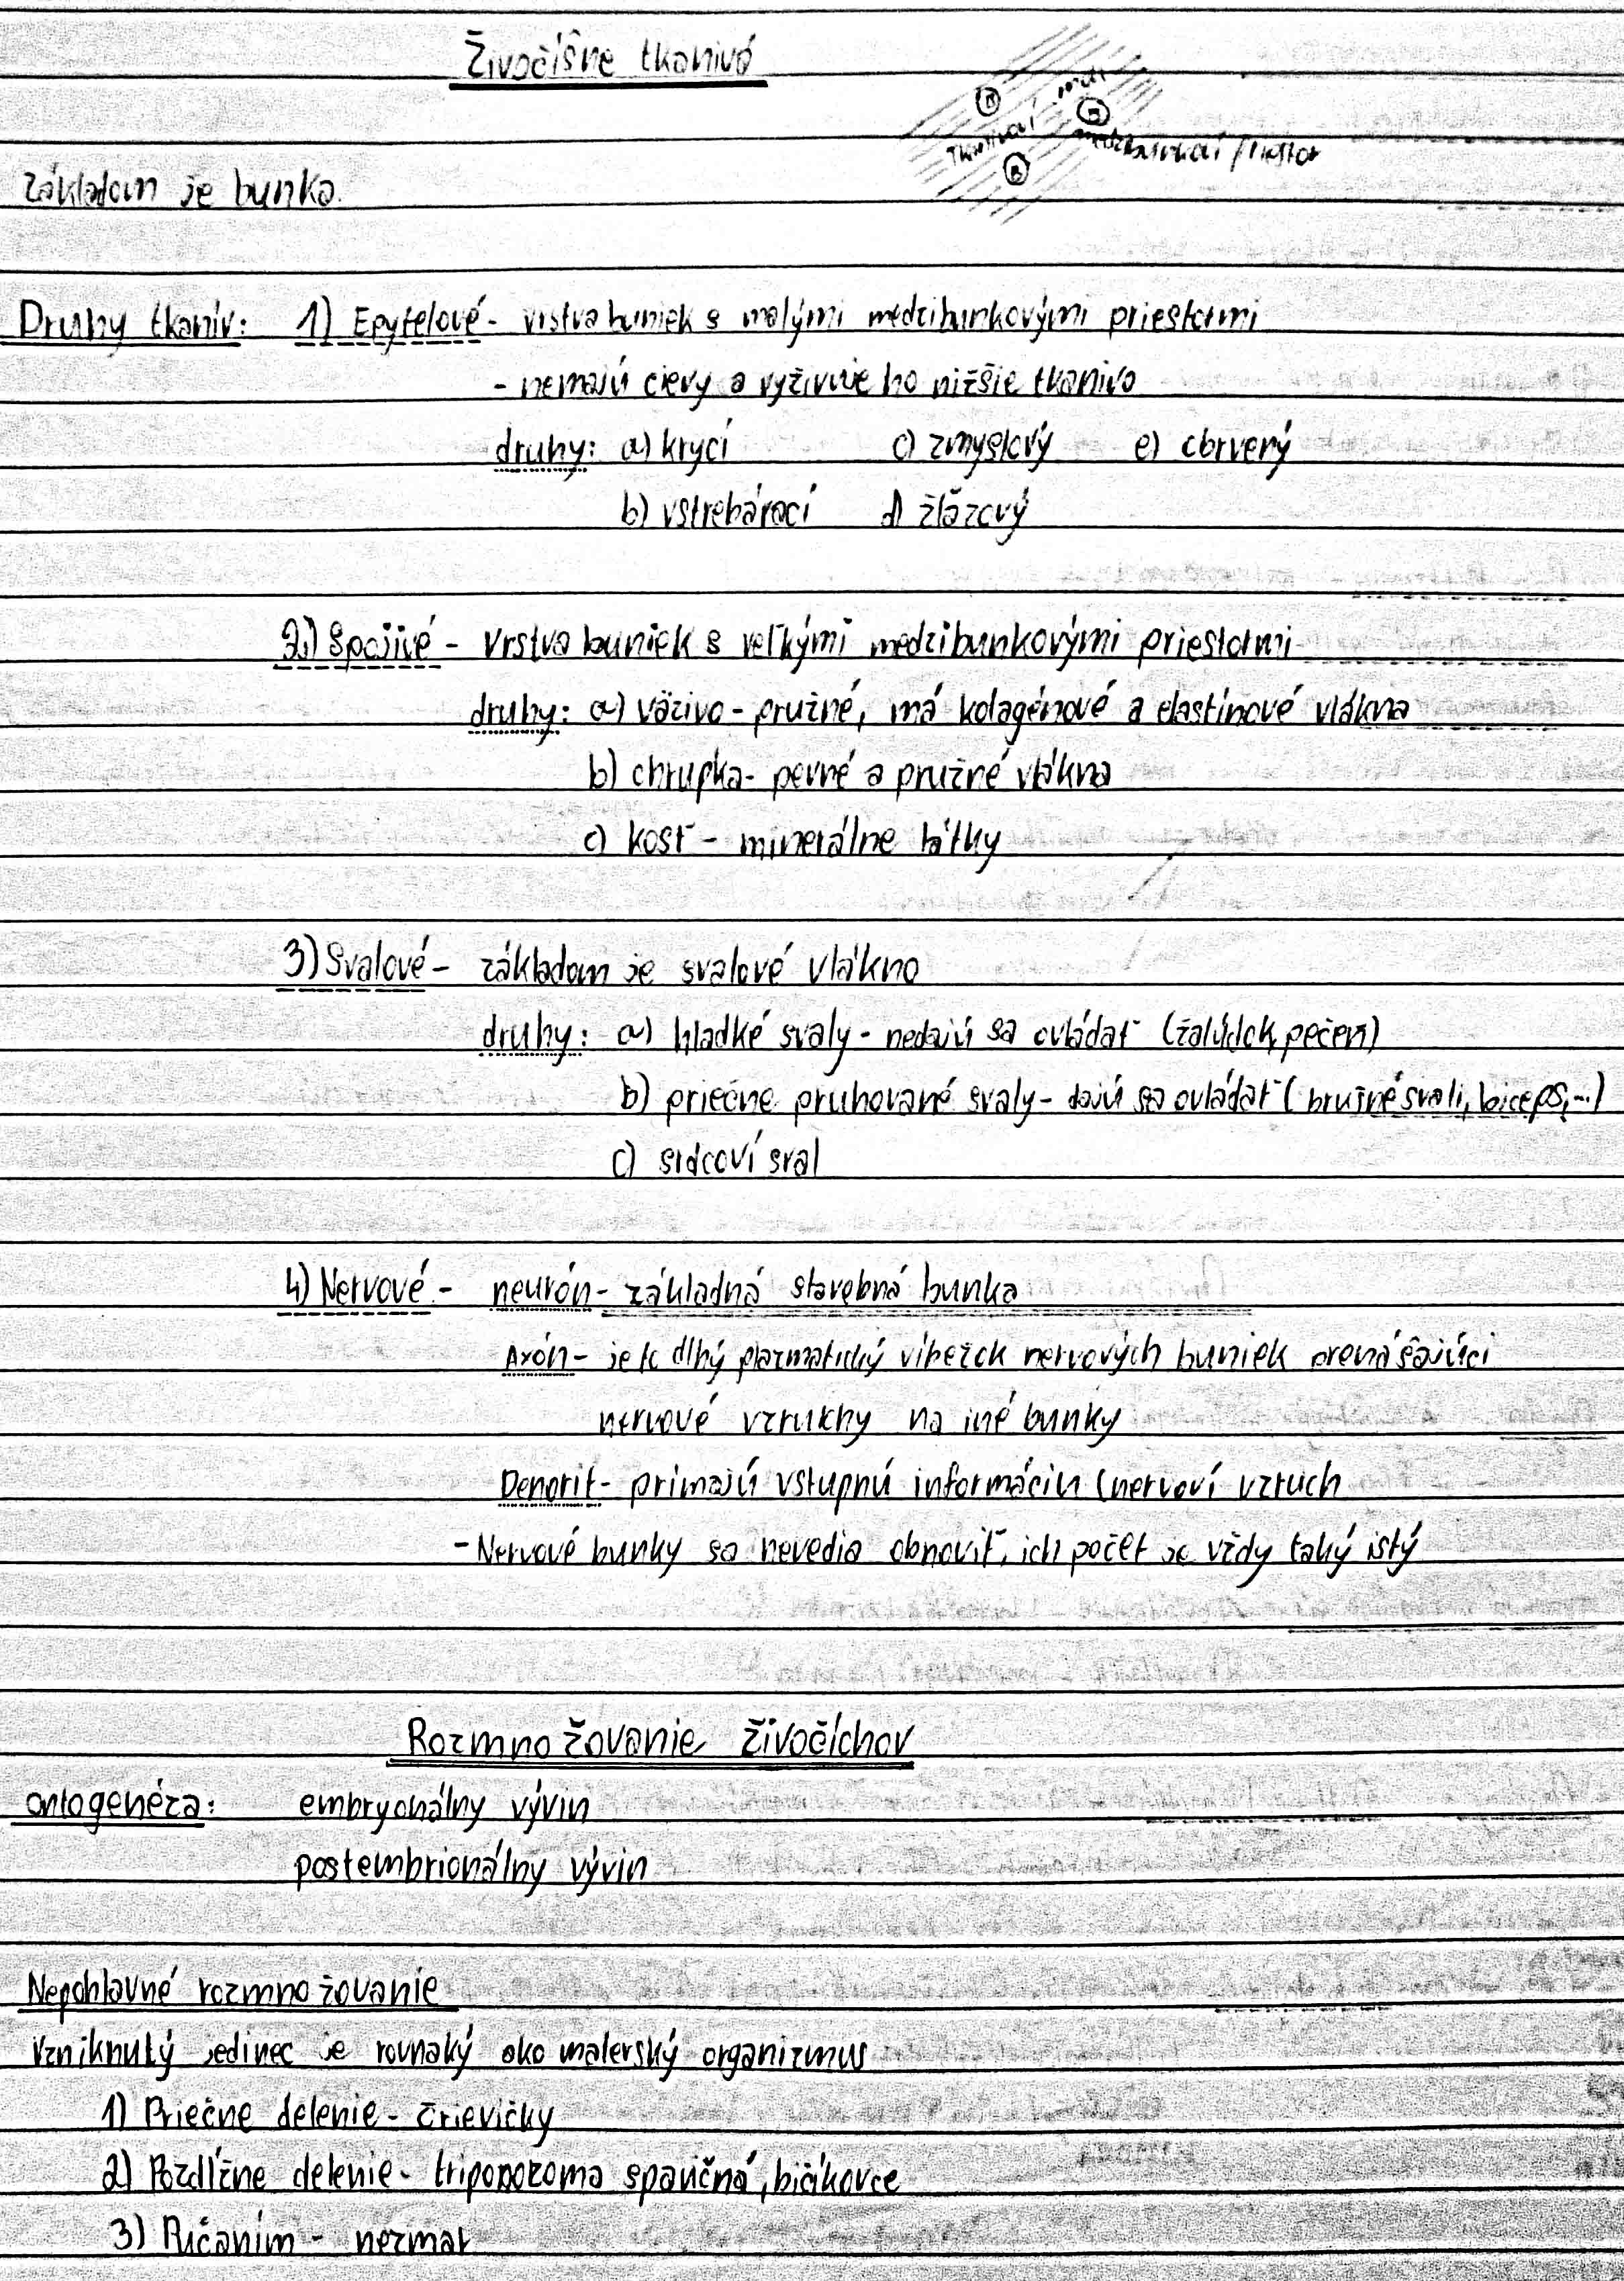 Živočíšne tkanivá
B
B
B
Tkanivový mok
medzibunkový priestor
Základom je bunka.
Druhy tkanív: 1) Epytelové - vrstva buniek s malými medzibunkovými priestormi
- nemajú cievy a vyživuje ho nižšie tkanivo
druhy: a) krycí c) zmyslový e) obrvený
b) vstrebávací d) žľazový
2) Spojivé - Vrstva buniek s veľkými medzibunkovými priestormi
druhy: a) väzivo - pružné, má kolagénové a elastínové vlákna
b) chrupka - pevné a pružné vlákna
c) kosť - minerálne látky
3) Svalové - základom je svalové vlákno
druhy: a) hladké svaly - nedajú sa ovládať (žalúdok, pečeň)
b) priečne pruhované svaly - dajú sa ovládať (brušné svali, biceps, ...)
c) srdcoví sval
4) Nervové - neurón - základná stavebná bunka
Axón - je to dlhý plazmatický víbežok nervových buniek prenášajúci
nervové vzruchy na iné bunky
Denorit - prímajú vstupnú informáciu (nervoví vzruch
- Nervové bunky sa nevedia obnoviť, ich počet je vždy taký istý
Rozmnožovanie živočíchov
ontogenéza: embryonálny vývin
postembrionálny vývin
Nepohlavné rozmnožovanie
Vzniknutý jedinec je rovnaký ako materský organizmus
1) Priečne delenie - črievičky
2) Pozdĺžne delenie - triponozoma spavičná, bičíkovce
3) Pučaním - nezmar